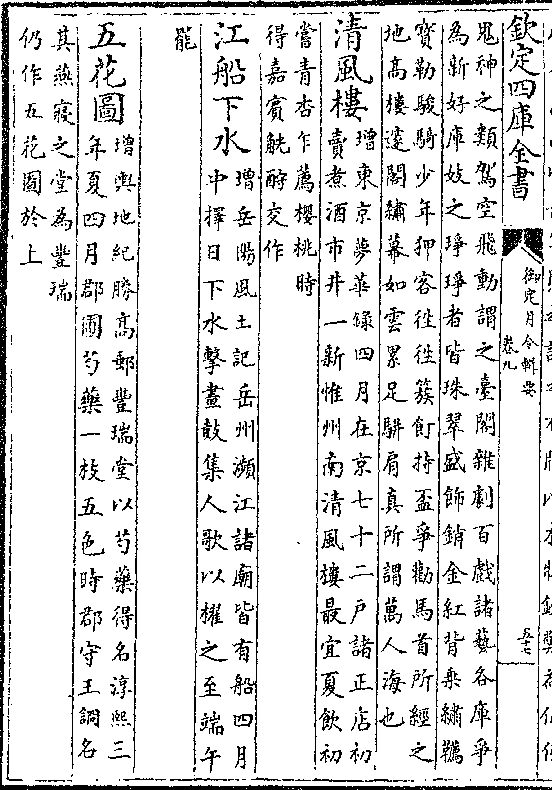 欽定四庫全書
御定月令輯要
卷九
五十七
鬼神之類駕空飛動謂之臺閣雜劇百戲諸藝各庫爭
為新好庫妓之琤琤者皆珠翠盛飾銷金紅背乗繡韉
寳勒駿騎少年狎客往往簇飣持盃爭勸馬首所經之
地高樓邃閣繡幕如雲累足駢肩真所謂萬人海也
清風樓
增東京夢華錄四月在京七十二戸諸正店初
賣煮酒市井一新惟州南清風樓最宜夏飲初
嘗青杏乍薦櫻桃時
得嘉賓觥酧交作
江船下水
增岳陽風土記岳州瀕江諸廟皆有船四月
中擇日下水擊畫鼓集人歌以櫂之至端午
罷
五花圖
增輿地紀勝高郵豐瑞堂以芍藥得名淳熙三
年夏四月郡圃芍藥一枝五色時郡守王詗名
其燕寢之堂為豐瑞
仍作五花圖於上